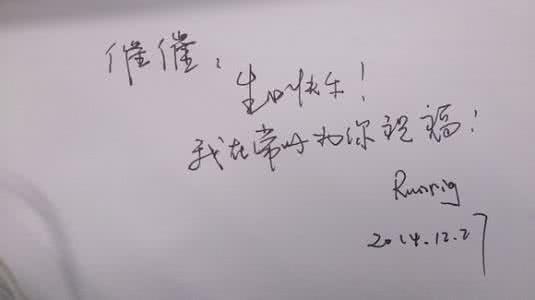 催催：
生日快乐！
我在常州为你祝福！
Running
2014.12.27